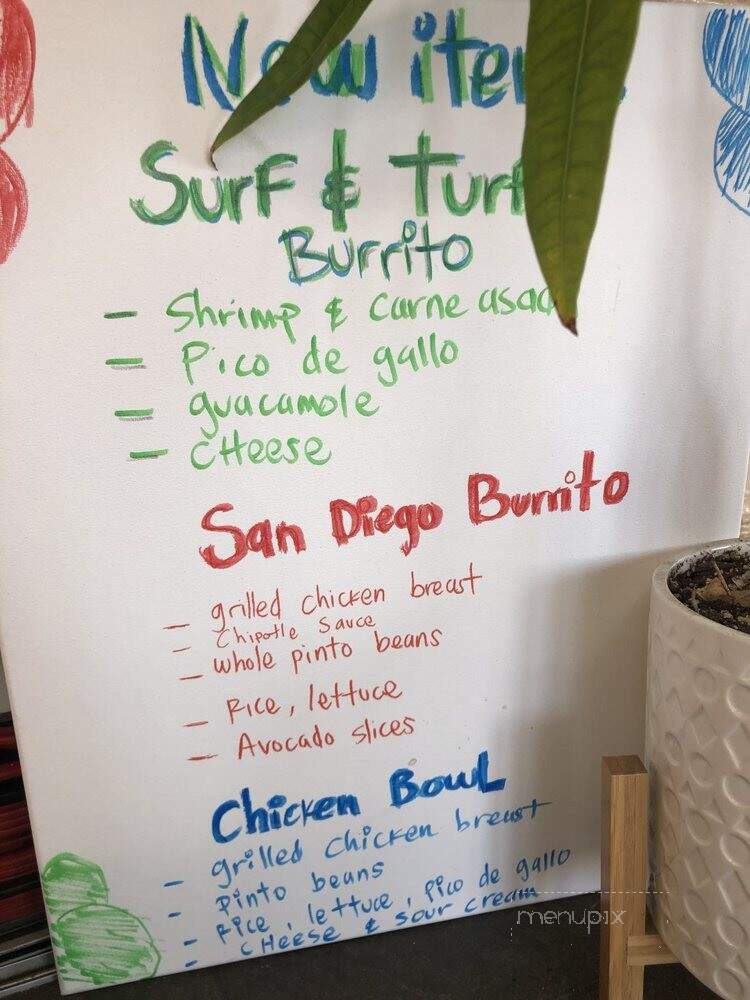 New item
Surf & Turf
Burrito
- Shrimp & carne asada
- Pico de gallo
- guacamole
- CHeese
San Diego Burrito
- grilled chicken breast
- Chipotle Sauce
- whole pinto beans
- Rice, lettuce
- Avocado slices
Chicken Bowl
- grilled chicken breast
- pinto beans
- Rice, lettuce, pico de gallo
- CHeese & sour cream
menupix